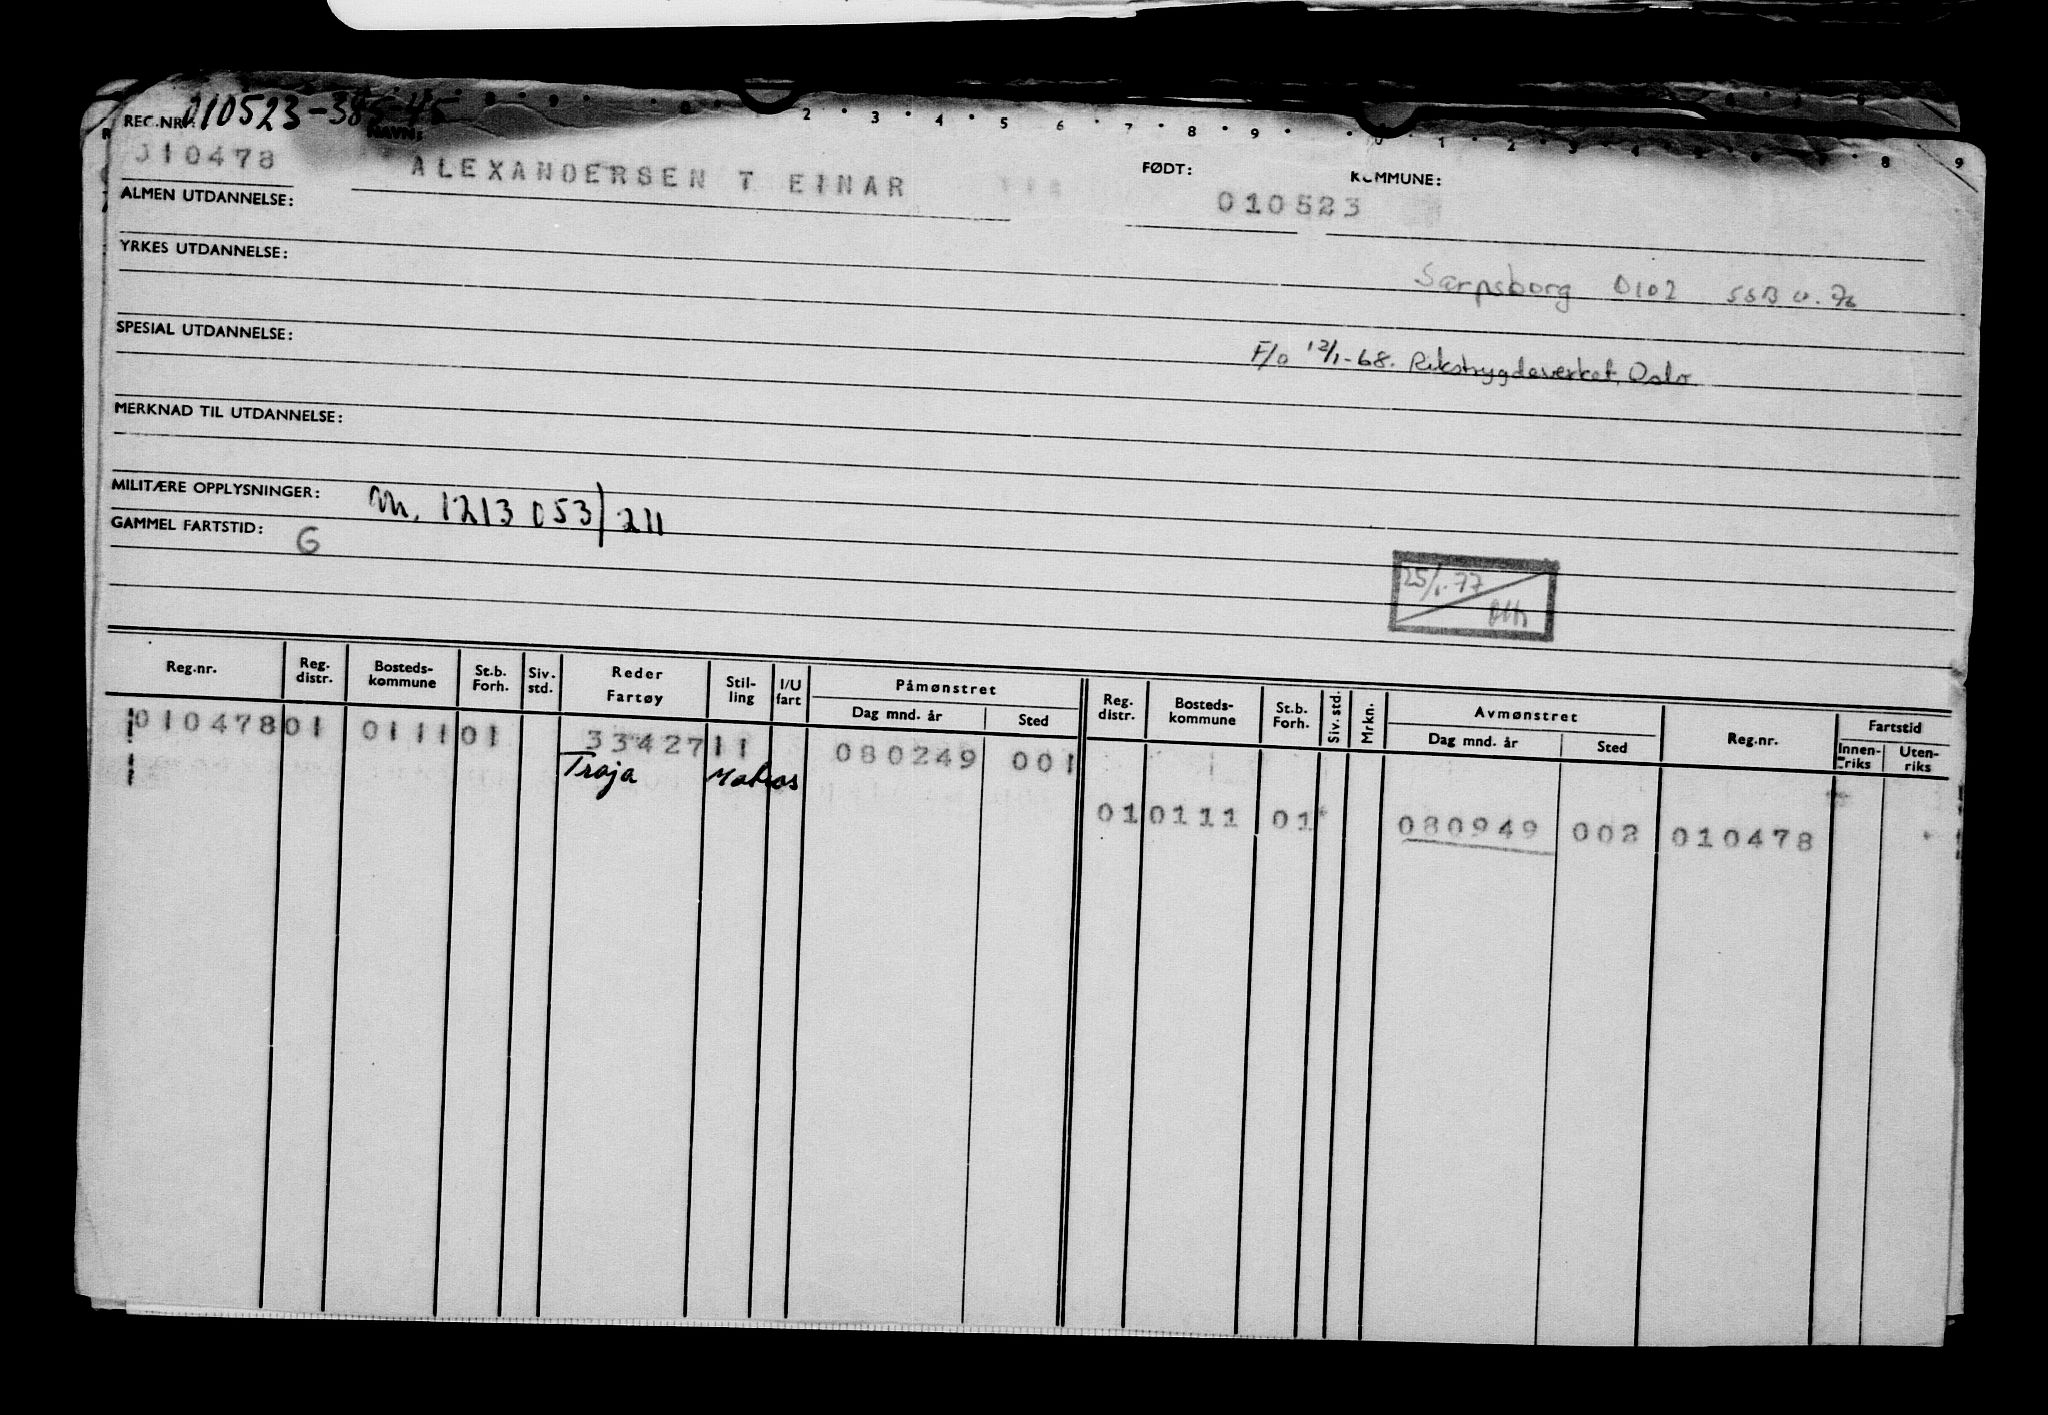 REG.NR.: 010523-385-45
NAVN:
2 3 4 5 6 7 8 9 0 1 2 3 4 5 6 7 8 9
010478 ALEXANDERSEN T EINAR FØDT: 010523 KOMMUNE:
ALMEN UTDANNELSE:
YRKES UTDANNELSE:
Sarpsborg 0102 SSB
SPESIAL UTDANNELSE:
F/o 12/1-68. Rikstrygdeverket, Oslo
MERKNAD TIL UTDANNELSE:
MILITÆRE OPPLYSNINGER: M. 1213 053/211
GAMMEL FARTSTID: G
25/1-77
Reg.nr. Reg. distr. Bosteds-kommune St.b. Forh. Siv. std. Reder Fartøy Stil-ling I/U fart Påmønstret Dag mnd. år Sted Reg. distr. Bosteds-kommune St.b. Forh. Siv. std. Mrkn. Avmønstret Dag mnd. år Sted Reg.nr. Fartstid Innen-riks Uten-riks
010478 01 0111 01 33427 11 080249 001
Troja Matros
01 0111 01 080949 002 010478